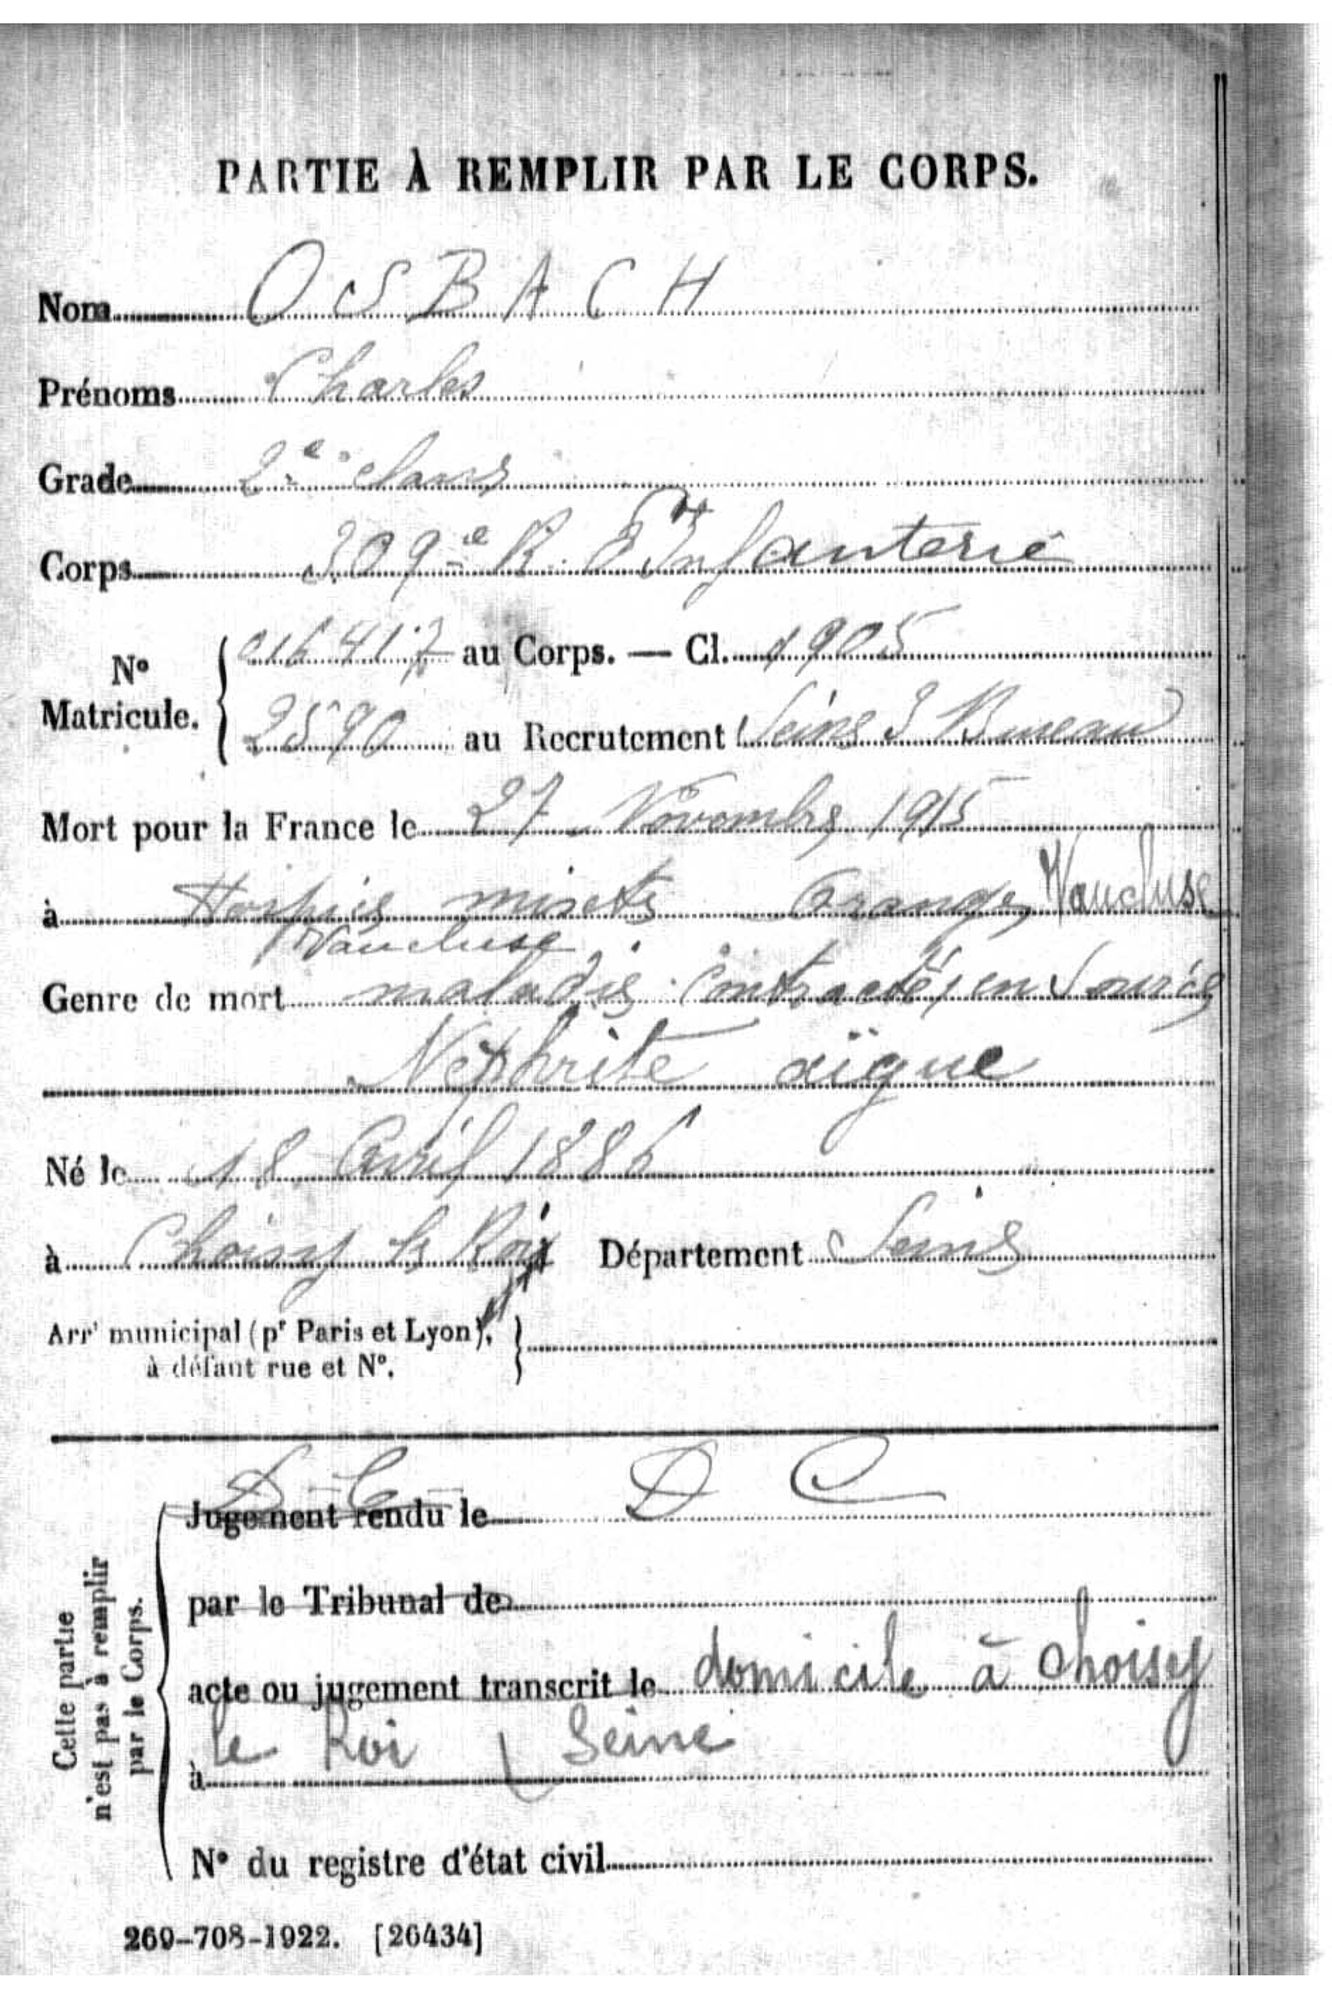 PARTIE À REMPLIR PAR LE CORPS.
Nom OSBACH
Prénoms Charles
Grade 2e classe
Corps 309e R. d'Infanterie
No Matricule. 016417 au Corps. — Cl. 1905
2590 au Recrutement Seine 3 Bureau
Mort pour la France le 27 Novembre 1915
à Hospice mixte Orange, Vaucluse
Vaucluse
Genre de mort maladie contractée en Service
Néphrite aïgue
Né le 18 Avril 1886
à Choisy le Roi Département Seine
Arrt municipal (pr Paris et Lyon),
à défaut rue et No.
D C D C
Jugement rendu le
par le Tribunal de
acte ou jugement transcrit le domicile à choisy
le Roi Seine
à
No du registre d'état civil
Cette partie
n'est pas à remplir
par le Corps.
269-708-1922. [26434]